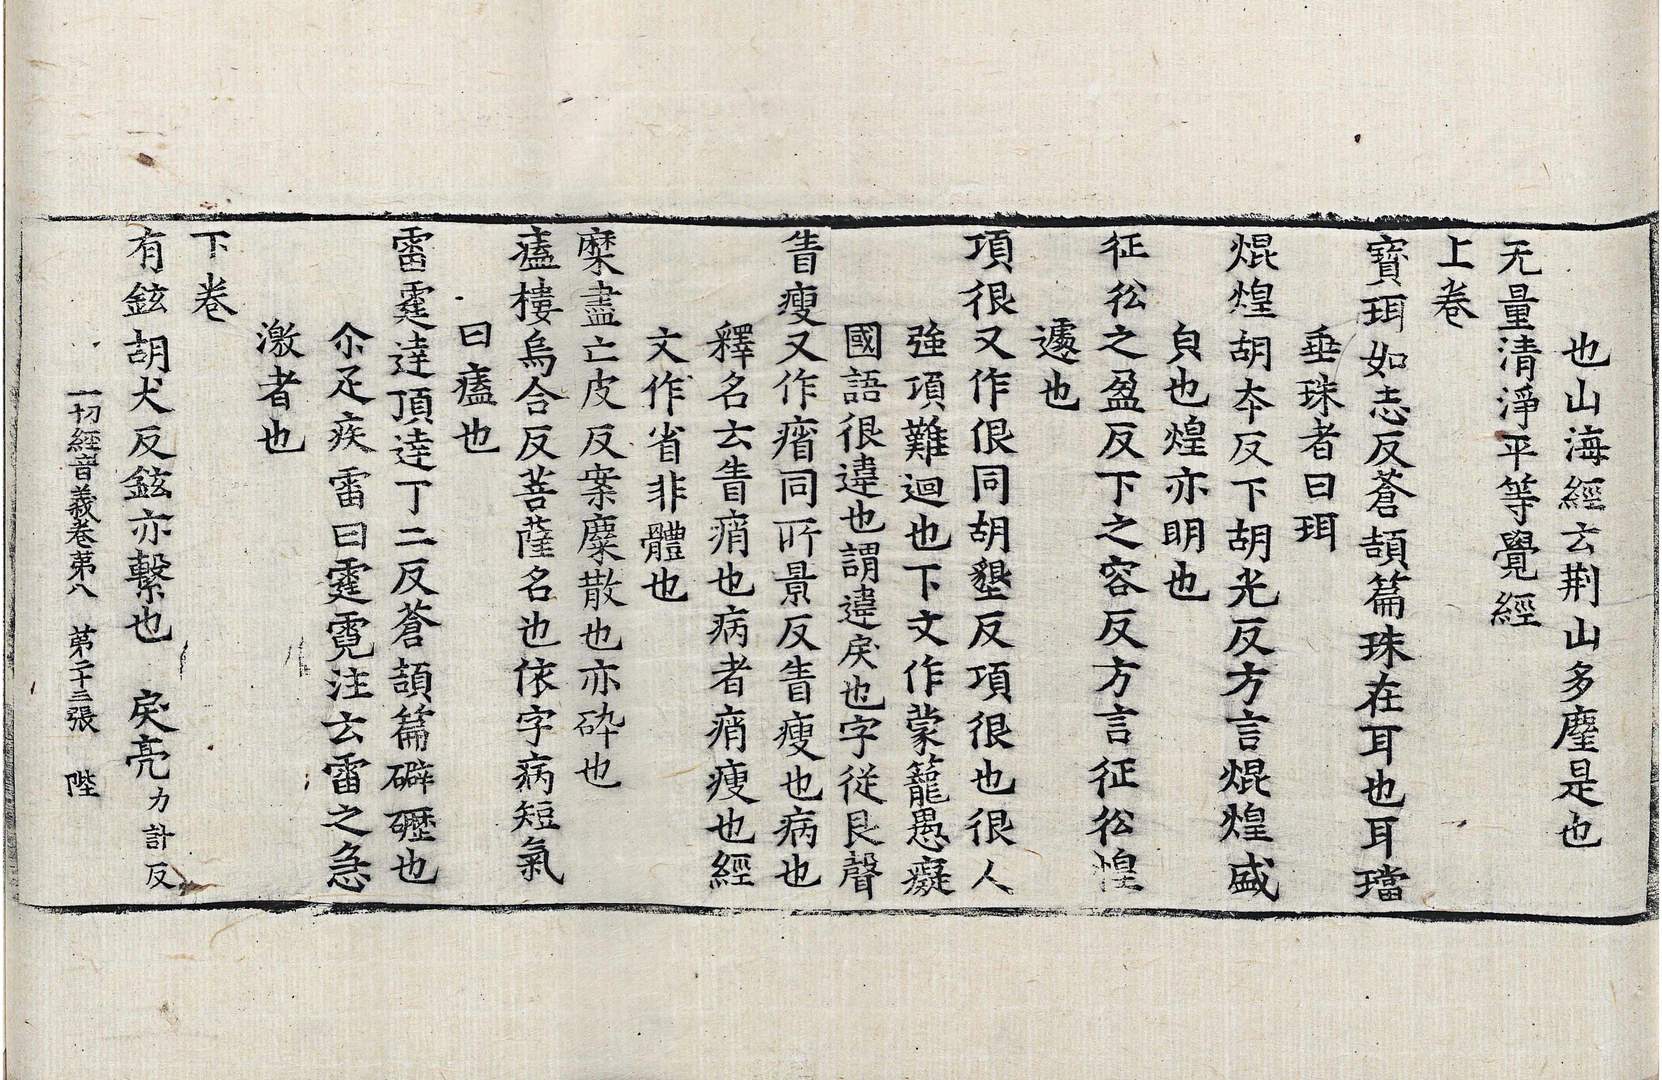 也山海經云荆山多麈是也
无量清淨平等覺經
上卷
寶珥如志反蒼頡篇珠在耳也耳璫
垂珠者曰珥
焜煌胡夲反下胡光反方言焜煌盛
㒵也煌亦明也
征彸之盈反下之容反方言征彸惶
遽也
項很又作佷同胡墾反項很也很人
強項難迴也下文作蒙籠愚癡
國語很違也謂違戾也字從艮聲
眚瘦又作㾪同所景反眚瘦也病也
釋名云眚痟也病者痟瘦也經
文作省非體也
縻盡亡皮反案縻散也亦碎也
㾑樓烏合反菩薩名也依字病短氣
曰㾑也
雷霆達頂達丁二反蒼頡篇礔礰也
尒疋疾雷曰霆霓注云雷之急
激者也
下卷
有鉉胡犬反鉉亦繫也 戾亮力計反
一切經音義卷第八 第二十三張 陛